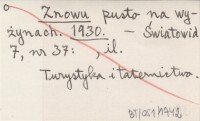 Znowu pusto na wy-
żynach. 1930. – Światowid
7, nr 37: , il.
Turystyka i taternictwo.